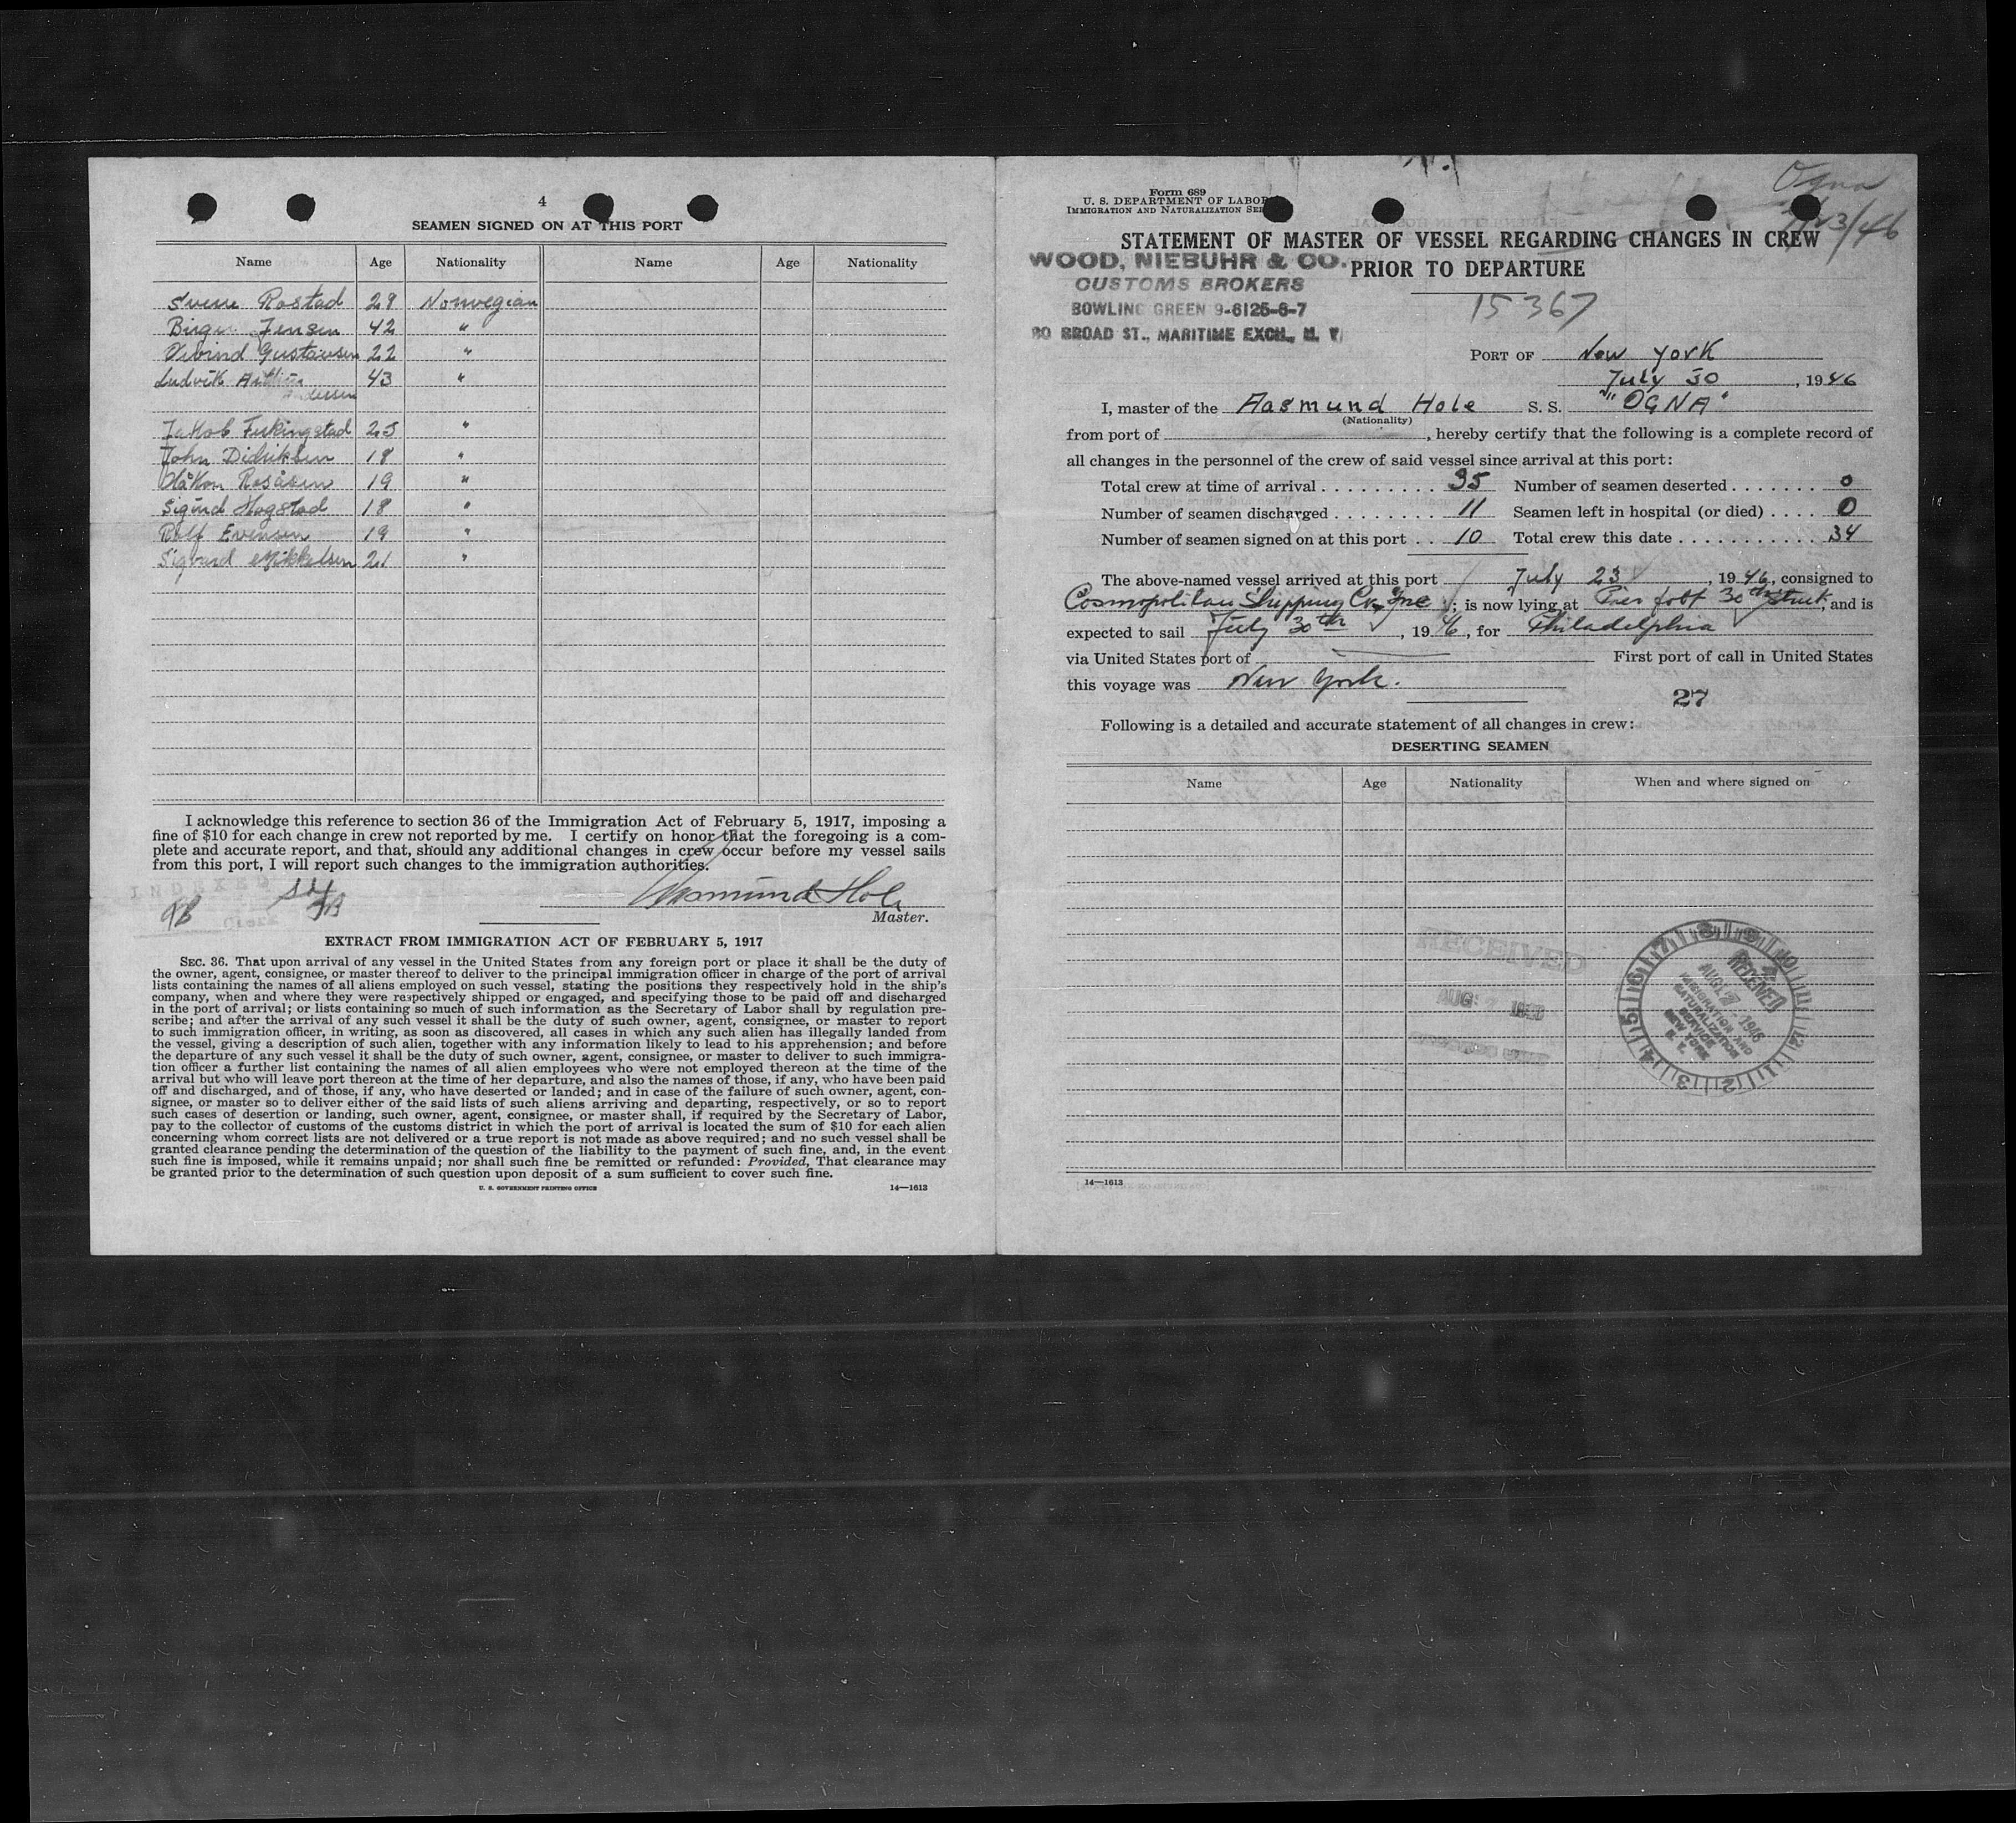 4
SEAMEN SIGNED ON AT THIS PORT
Name Age Nationality Name Age Nationality
Sverre Rostad 28 Norwegian
Birger Jensen 42 "
Öivind Gustavsen 22 "
Ludvik 43 "
Andersen
Jakob 25 "
John Didriksen 18 "
Håkon Rosåsen 19 "
Sigurd Hagstad 18 "
Rolf Evensen 19 "
Sigvard Mikkelsen 21 "
I acknowledge this reference to section 36 of the Immigration Act of February 5, 1917, imposing a
fine of $10 for each change in crew not reported by me. I certify on honor that the foregoing is a com-
plete and accurate report, and that, should any additional changes in crew occur before my vessel sails
from this port, I will report such changes to the immigration authorities.
INDEXED
Clerk
Aasmund Hole
Master.
EXTRACT FROM IMMIGRATION ACT OF FEBRUARY 5, 1917
SEC. 36. That upon arrival of any vessel in the United States from any foreign port or place it shall be the duty of
the owner, agent, consignee, or master thereof to deliver to the principal immigration officer in charge of the port of arrival
lists containing the names of all aliens employed on such vessel, stating the positions they respectively hold in the ship's
company, when and where they were respectively shipped or engaged, and specifying those to be paid off and discharged
in the port of arrival; or lists containing so much of such information as the Secretary of Labor shall by regulation pre-
scribe; and after the arrival of any such vessel it shall be the duty of such owner, agent, consignee, or master to report
to such immigration officer, in writing, as soon as discovered, all cases in which any such alien has illegally landed from
the vessel, giving a description of such alien, together with any information likely to lead to his apprehension; and before
the departure of any such vessel it shall be the duty of such owner, agent, consignee, or master to deliver to such immigra-
tion officer a further list containing the names of all alien employees who were not employed thereon at the time of the
arrival but who will leave port thereon at the time of her departure, and also the names of those, if any, who have been paid
off and discharged, and of those, if any, who have deserted or landed; and in case of the failure of such owner, agent, con-
signee, or master so to deliver either of the said lists of such aliens arriving and departing, respectively, or so to report
such cases of desertion or landing, such owner, agent, consignee, or master shall, if required by the Secretary of Labor,
pay to the collector of customs of the customs district in which the port of arrival is located the sum of $10 for each alien
concerning whom correct lists are not delivered or a true report is not made as above required; and no such vessel shall be
granted clearance pending the determination of the question of the liability to the payment of such fine, and, in the event
such fine is imposed, while it remains unpaid; nor shall such fine be remitted or refunded: Provided, That clearance may
be granted prior to the determination of such question upon deposit of a sum sufficient to cover such fine.
U. S. GOVERNMENT PRINTING OFFICE 14—1613
Form 689
U. S. DEPARTMENT OF LABOR
IMMIGRATION AND NATURALIZATION SE
Ogna
/23/46
STATEMENT OF MASTER OF VESSEL REGARDING CHANGES IN CREW
PRIOR TO DEPARTURE
WOOD, NIEBUHR & CO.
CUSTOMS BROKERS
BOWLING GREEN 9-6125-6-7
80 BROAD ST., MARITIME EXCH., N. Y.
15367
PORT OF New York
July 30, 1946
I, master of the Aasmund Hole S. S. "OGNA"
(Nationality)
from port of , hereby certify that the following is a complete record of
all changes in the personnel of the crew of said vessel since arrival at this port:
Total crew at time of arrival 35 Number of seamen deserted 0
Number of seamen discharged 11 Seamen left in hospital (or died) 0
Number of seamen signed on at this port 10 Total crew this date 34
The above-named vessel arrived at this port July 23, 1946, consigned to
Cosmopolitan Shipping Co. Inc; is now lying at Pier foot 30th Street, and is
expected to sail July 30th, 1946, for Philadelphia
via United States port of — First port of call in United States
this voyage was New York.
27
Following is a detailed and accurate statement of all changes in crew:
DESERTING SEAMEN
Name Age Nationality When and where signed on
RECEIVED
AUG
RECEIVED
AUG 2 1946
IMMIGRATION AND
NATURALIZATION
SERVICE
NEW YORK
N. Y.
14—1613